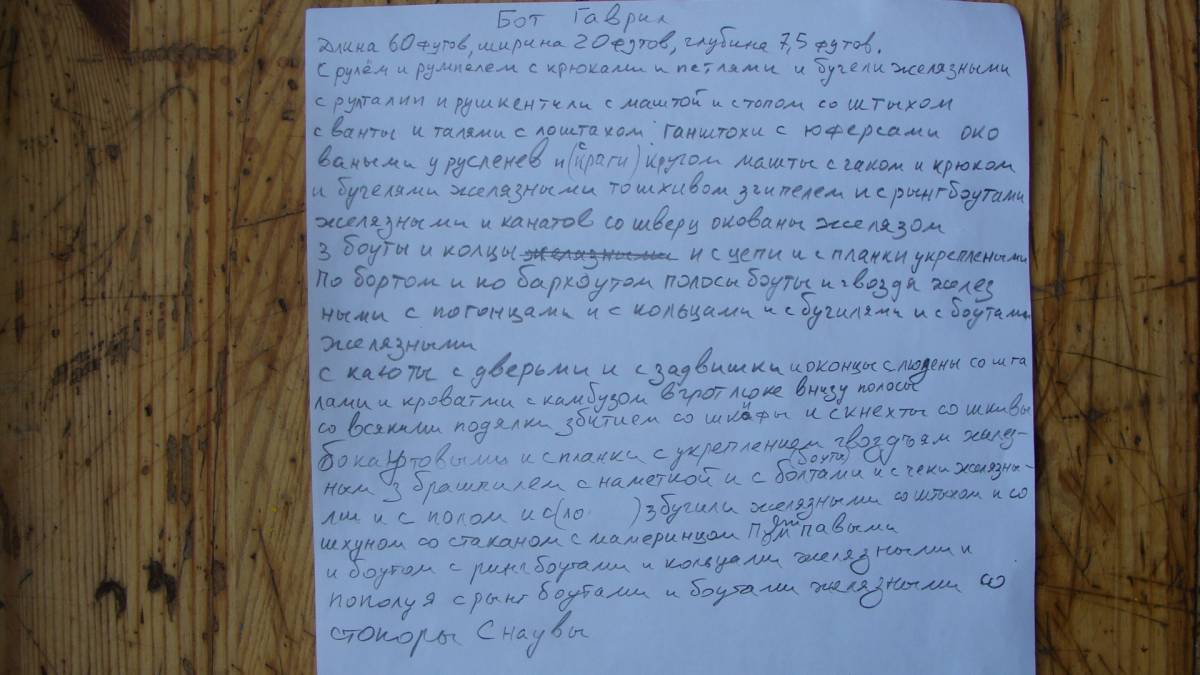 Бот Гаврил
Длина 60 футов, ширина 20 футов, глубина 7,5 футов.
С рулём и румпелем с крюками и петлями и бугели желязными
с рулталии и рушкентили с маштой и стопом со штыхом
с ванты и талями с лоштахом ганштохи с юферсами око
ваными у русленев и (с краги) кругом машты с гаком и крюком
и бугелями желязными то шхивом з гипелем и с рынгбоутами
желязными и канатов со шверц окованы желязом
з боуты и колцы желязными и с цепи и с планки укреплеными
По бортом и по бархоутом полосы боуты и гвозди желез
ными с погонцами и с кольцами и с бугилями и с боутами
желязными
с каюты с дверьми и с задвишки и оконцы слюдены со шта
лами и кроватми с камбузом в грот люке внизу полосы
со всякими поделки збитием со шкафы и с кнехты со шкивы
бокаутовыми и с планки с укреплением гвоздьям желез-
ным з брашпилем с наметкой и с болтами (боути) и с чеки желязны-
ми и с полом и с (ло ) з бугили желязными со штыхом и со
шхуном со стаканом с мамеринцом
и боутом с рингбоутами и кольцами желязными и
пополуя с рынг боутами и боутами желязными со
стопоры Снаувы